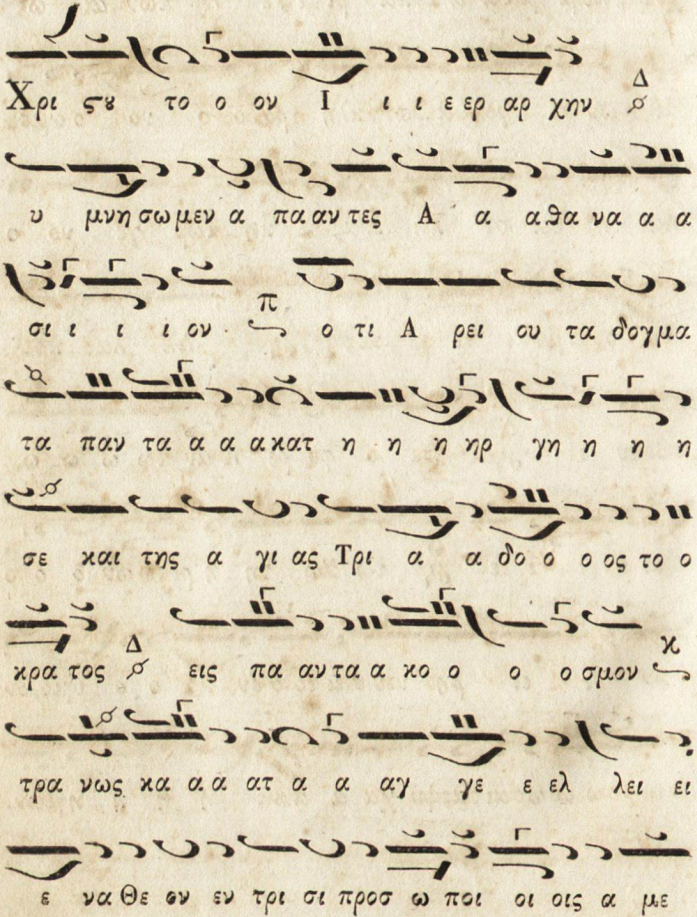 Χρι ϛȣ το ο ον Ι ι ι ε ερ αρ χην Δ
υ μνη σω μεν α πα αν τες Α α α ϑα να α α
σι ι ι ι ον π ο τι Α ρει ου τα δογμα
τα παν τα α α α κατ η η η ηρ γη η η η
σε και της α γι ας Τρι α α δο ο ο ος το ο
κρα τος Δ εις πα αν τα α κο ο ο ο σμον κ
τρα νως κα α α ατ α α αγ γε ε ελ λει ει
ε να Θε ον εν τρι σι προσ ω ποι οι οις α με